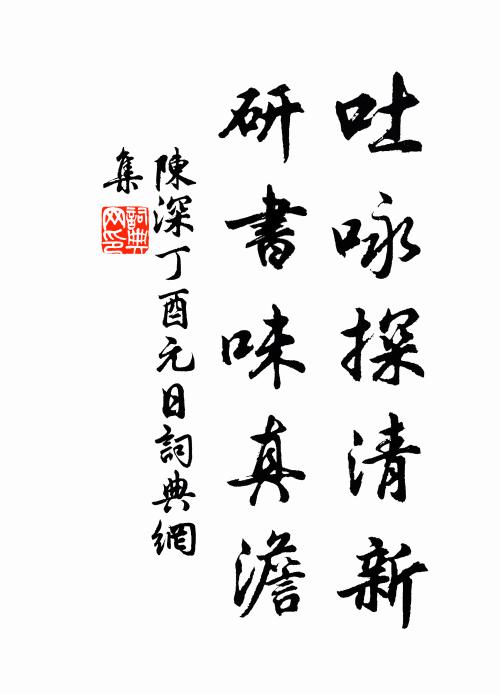 吐咏探清新
研書味真澹
陳深丁酉元日詞典網
集
詞典網印